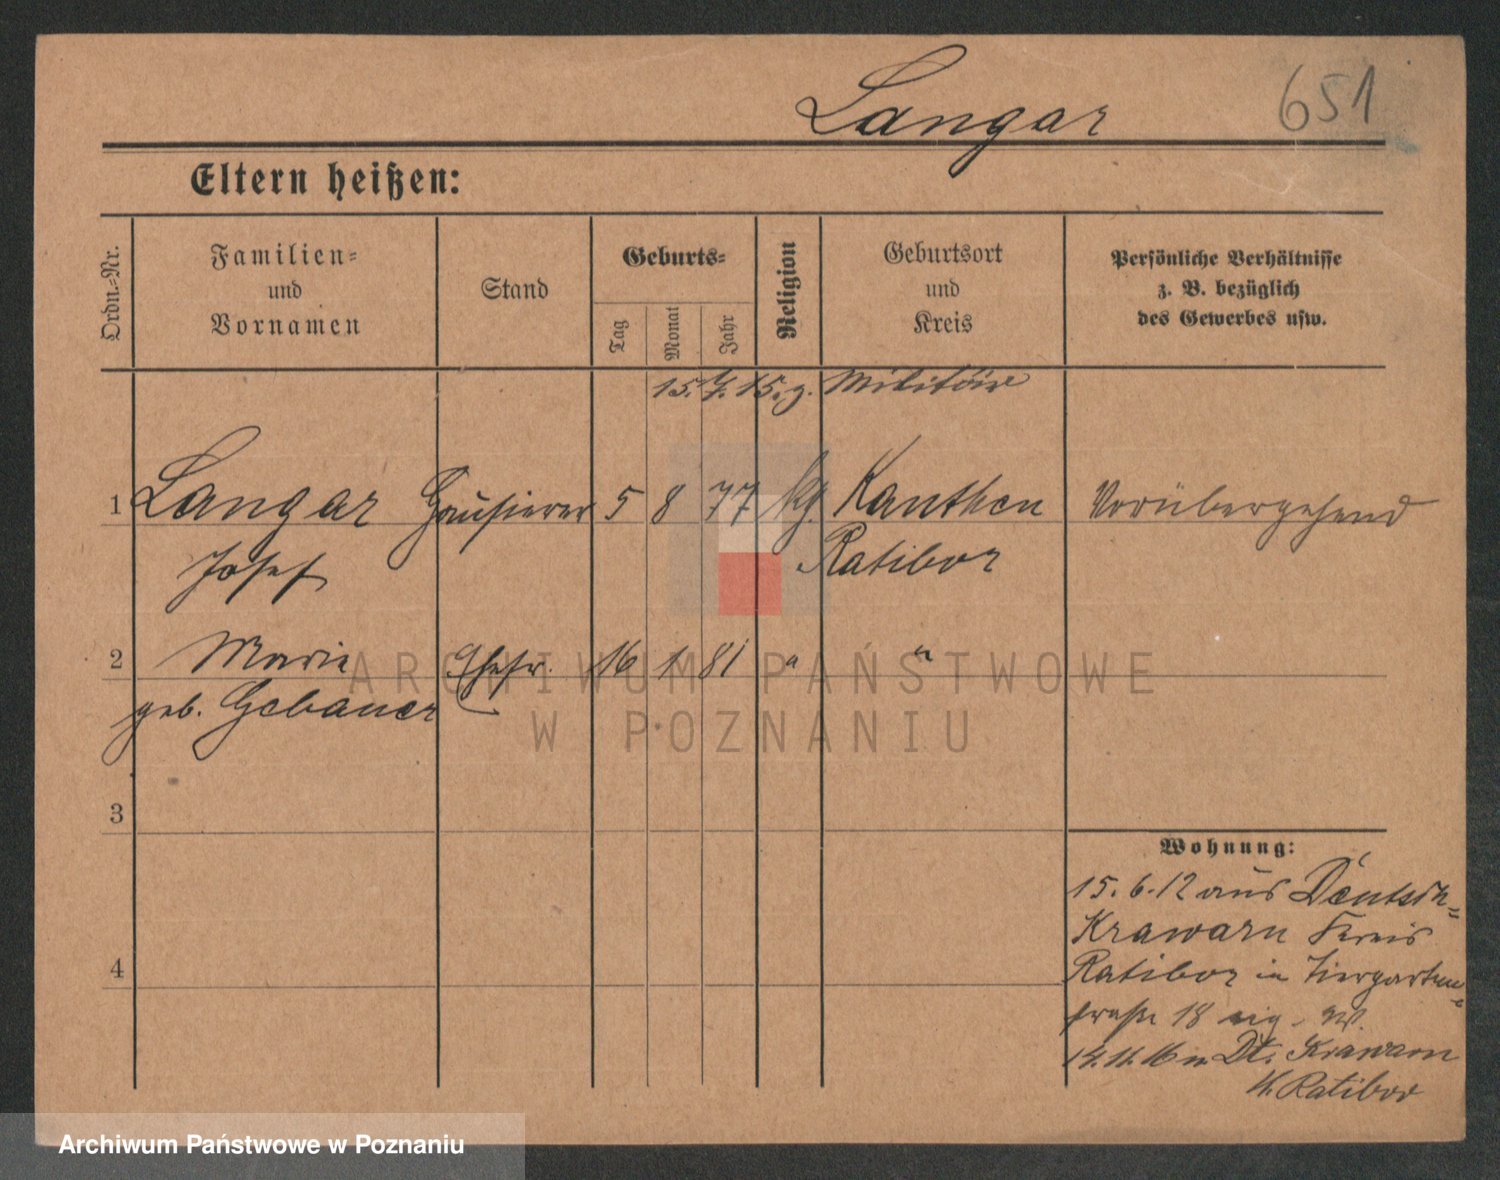 Langar
651
Eltern heißen:
Ordn.-Nr.
Familien-
und
Vornamen
Stand
Geburts-
Tag
Monat
Jahr
Religion
Geburtsort
und
Kreis
Persönliche Verhältnisse
z. B. bezüglich
des Gewerbes usw.
15. 7. 15. z. Militär
1 Langar Hausierer 5 8 77 kg. Kauthen Vorübergehend
Josef Ratibor
2 Marie Ehefr. 16 1 81 " "
geb. Gebauer
3
4
Wohnung:
15.6.12 aus Deutsch-
Krawarn Kreis
Ratibor in Tiergarten-
straße 18 eig. W.
14.11.16 n Dt. Krawarn
K. Ratibor
ARCHIWUM PAŃSTWOWE
W POZNANIU
Archiwum Państwowe w Poznaniu